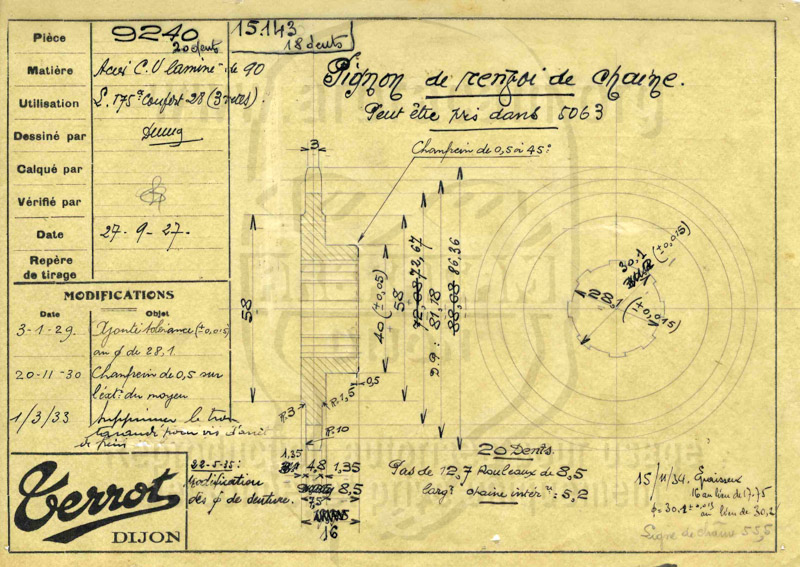 Pièce 9240 15.143
20 dents 18 dents
Matière Acier C.V laminé de 90
Utilisation L. 175 Confort 28
Dessiné par
Calqué par
Vérifié par
Date 27-9-27.
Repère
de tirage
MODIFICATIONS
Date Objet
3-1-29. Ajouté tolérance (±0,015)
au φ de 28,1
20-11-30 Chanfrein de 0,5 sur
l'extr. du moyeu
1/3/33 Supprimer le trou
pour vis d'arrêt
Terrot
DIJON
22-5-35:
Modification
des φ de denture.
Pignon de renvoi de chaîne.
Peut être pris dans 5063
Chanfrein de 0,5 à 45°
3
58
40 (±0,05)
58
72,08 72,67
D.P: 81,18
88,08 86,36
0,5
R.3
R.1,5
R.10
1,35
4,8 1,35
8,5
16
30,1 (±0,015)
28,1 (±0,015)
20 Dents.
Pas de 12,7 Rouleaux de 8,5
larg. chaîne intér.: 5,2
15/11/34. Épaisseur
16 au lieu de 17.75
φ=30.1 ±0,015 au lieu de 30,2
Ligne de chaîne 55,5